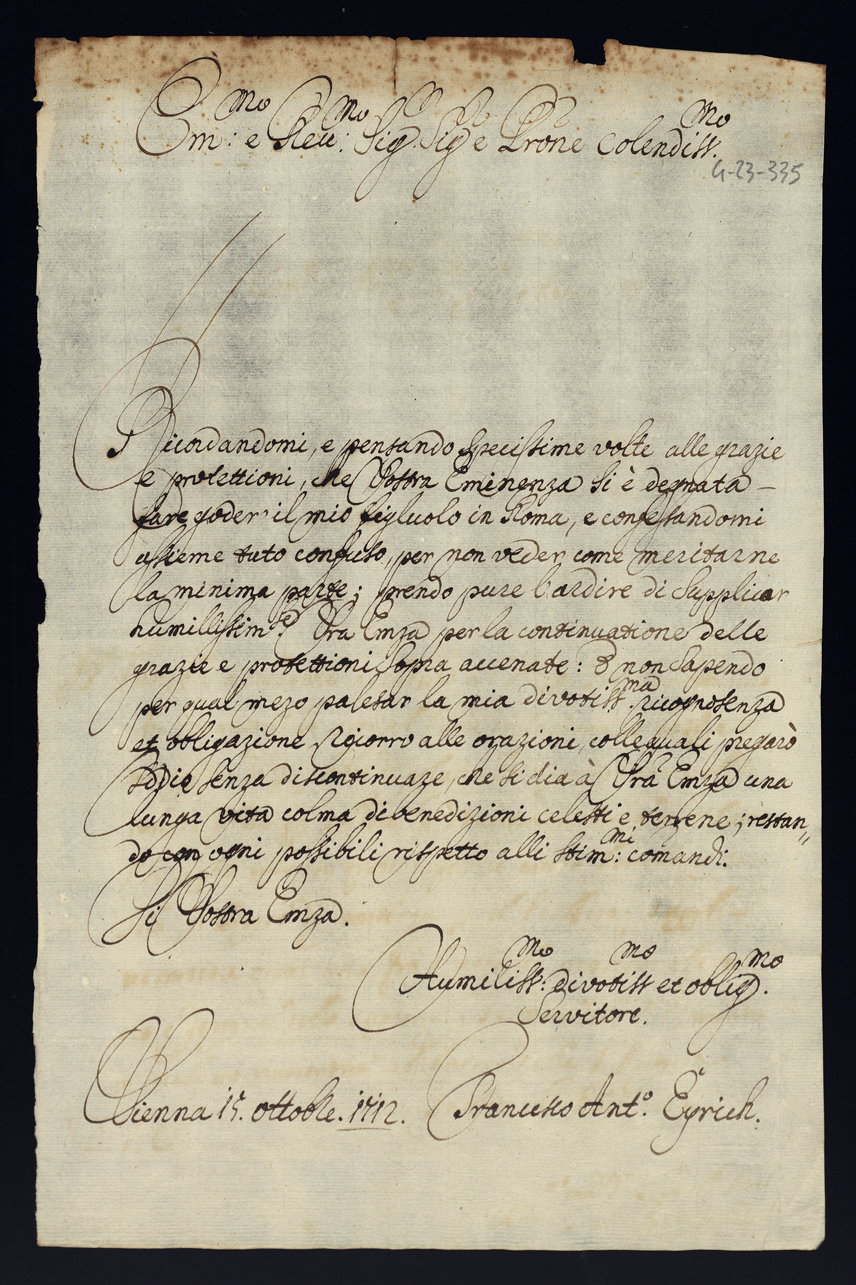 Em:mo e Reu:mo Sig.r Sig.r e Prone Colendiss.mo
G-23-335
Ricordandomi, e pensando specissime volte alle grazie
e protettioni, che Vostra Eminenza si è degnata –
fare goder' il mio figluolo in Roma, e confessandomi
assieme tuto confuso, per non veder come meritarne
la minima parte; prendo pure l'ardire di supplicar
humillissim:te Vra Emza per la continuatione delle
grazie e protettioni sopra accenate: & non sapendo
per qual mezo palesar la mia divotiss.ma ricognosenza
et obbligazione, ricorro alle orazioni, colle quali pregarò
Iddio senza discontinuare, che si dia à Vrã Emza una
lunga vita colma di benedizioni celesti e terrene; restan„
do con ogni possibili rispetto alli stim:mi comandi.
Di Vostra Emza.
Humiliss:mo divotiss.mo et oblig.mo
Servitore.
Vienna 15. ottoble. 1712. Francesco Ant.o Eyrich.